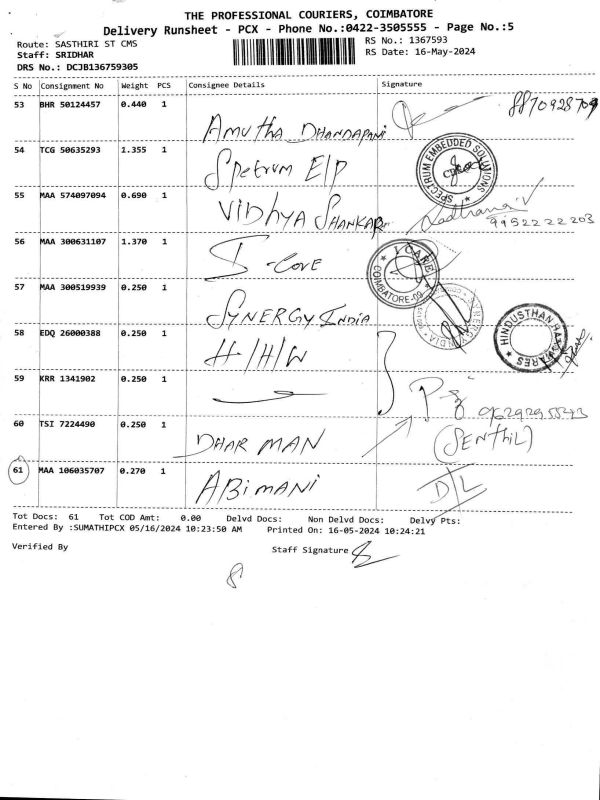 THE PROFESSIONAL COURIERS, COIMBATORE
Delivery Runsheet - PCX - Phone No.:0422-3505555 - Page No.:5
Route: SASTHIRI ST CMS
RS No.: 1367593
Staff: SRIDHAR
RS Date: 16-May-2024
DRS No.: DCJB136759305
S No Consignment No Weight PCS Consignee Details Signature
53 BHR 50124457 0.440 1
Amutha Dhandapani 8870928709
54 TCG 50635293 1.355 1
Spetrum E/P
SPECTRUM EMBEDDED SOLUTIONS
55 MAA 574097094 0.690 1
Vidhya Shankar
9952222203
56 MAA 300631107 1.370 1
I-Cove
I CARE
COIMBATORE-09
57 MAA 300519939 0.250 1
Synergy India
58 EDQ 26000388 0.250 1
H/H/W
HINDUSTHAN HARDWARES
59 KRR 1341902 0.250 1
60 TSI 7224490 0.250 1
Dhar man
(Senthil)
61 MAA 106035707 0.270 1
Abimani D/L
Tot Docs: 61 Tot COD Amt: 0.00 Delvd Docs: Non Delvd Docs: Delvy Pts:
Entered By :SUMATHIPCX 05/16/2024 10:23:50 AM Printed On: 16-05-2024 10:24:21
Verified By Staff Signature